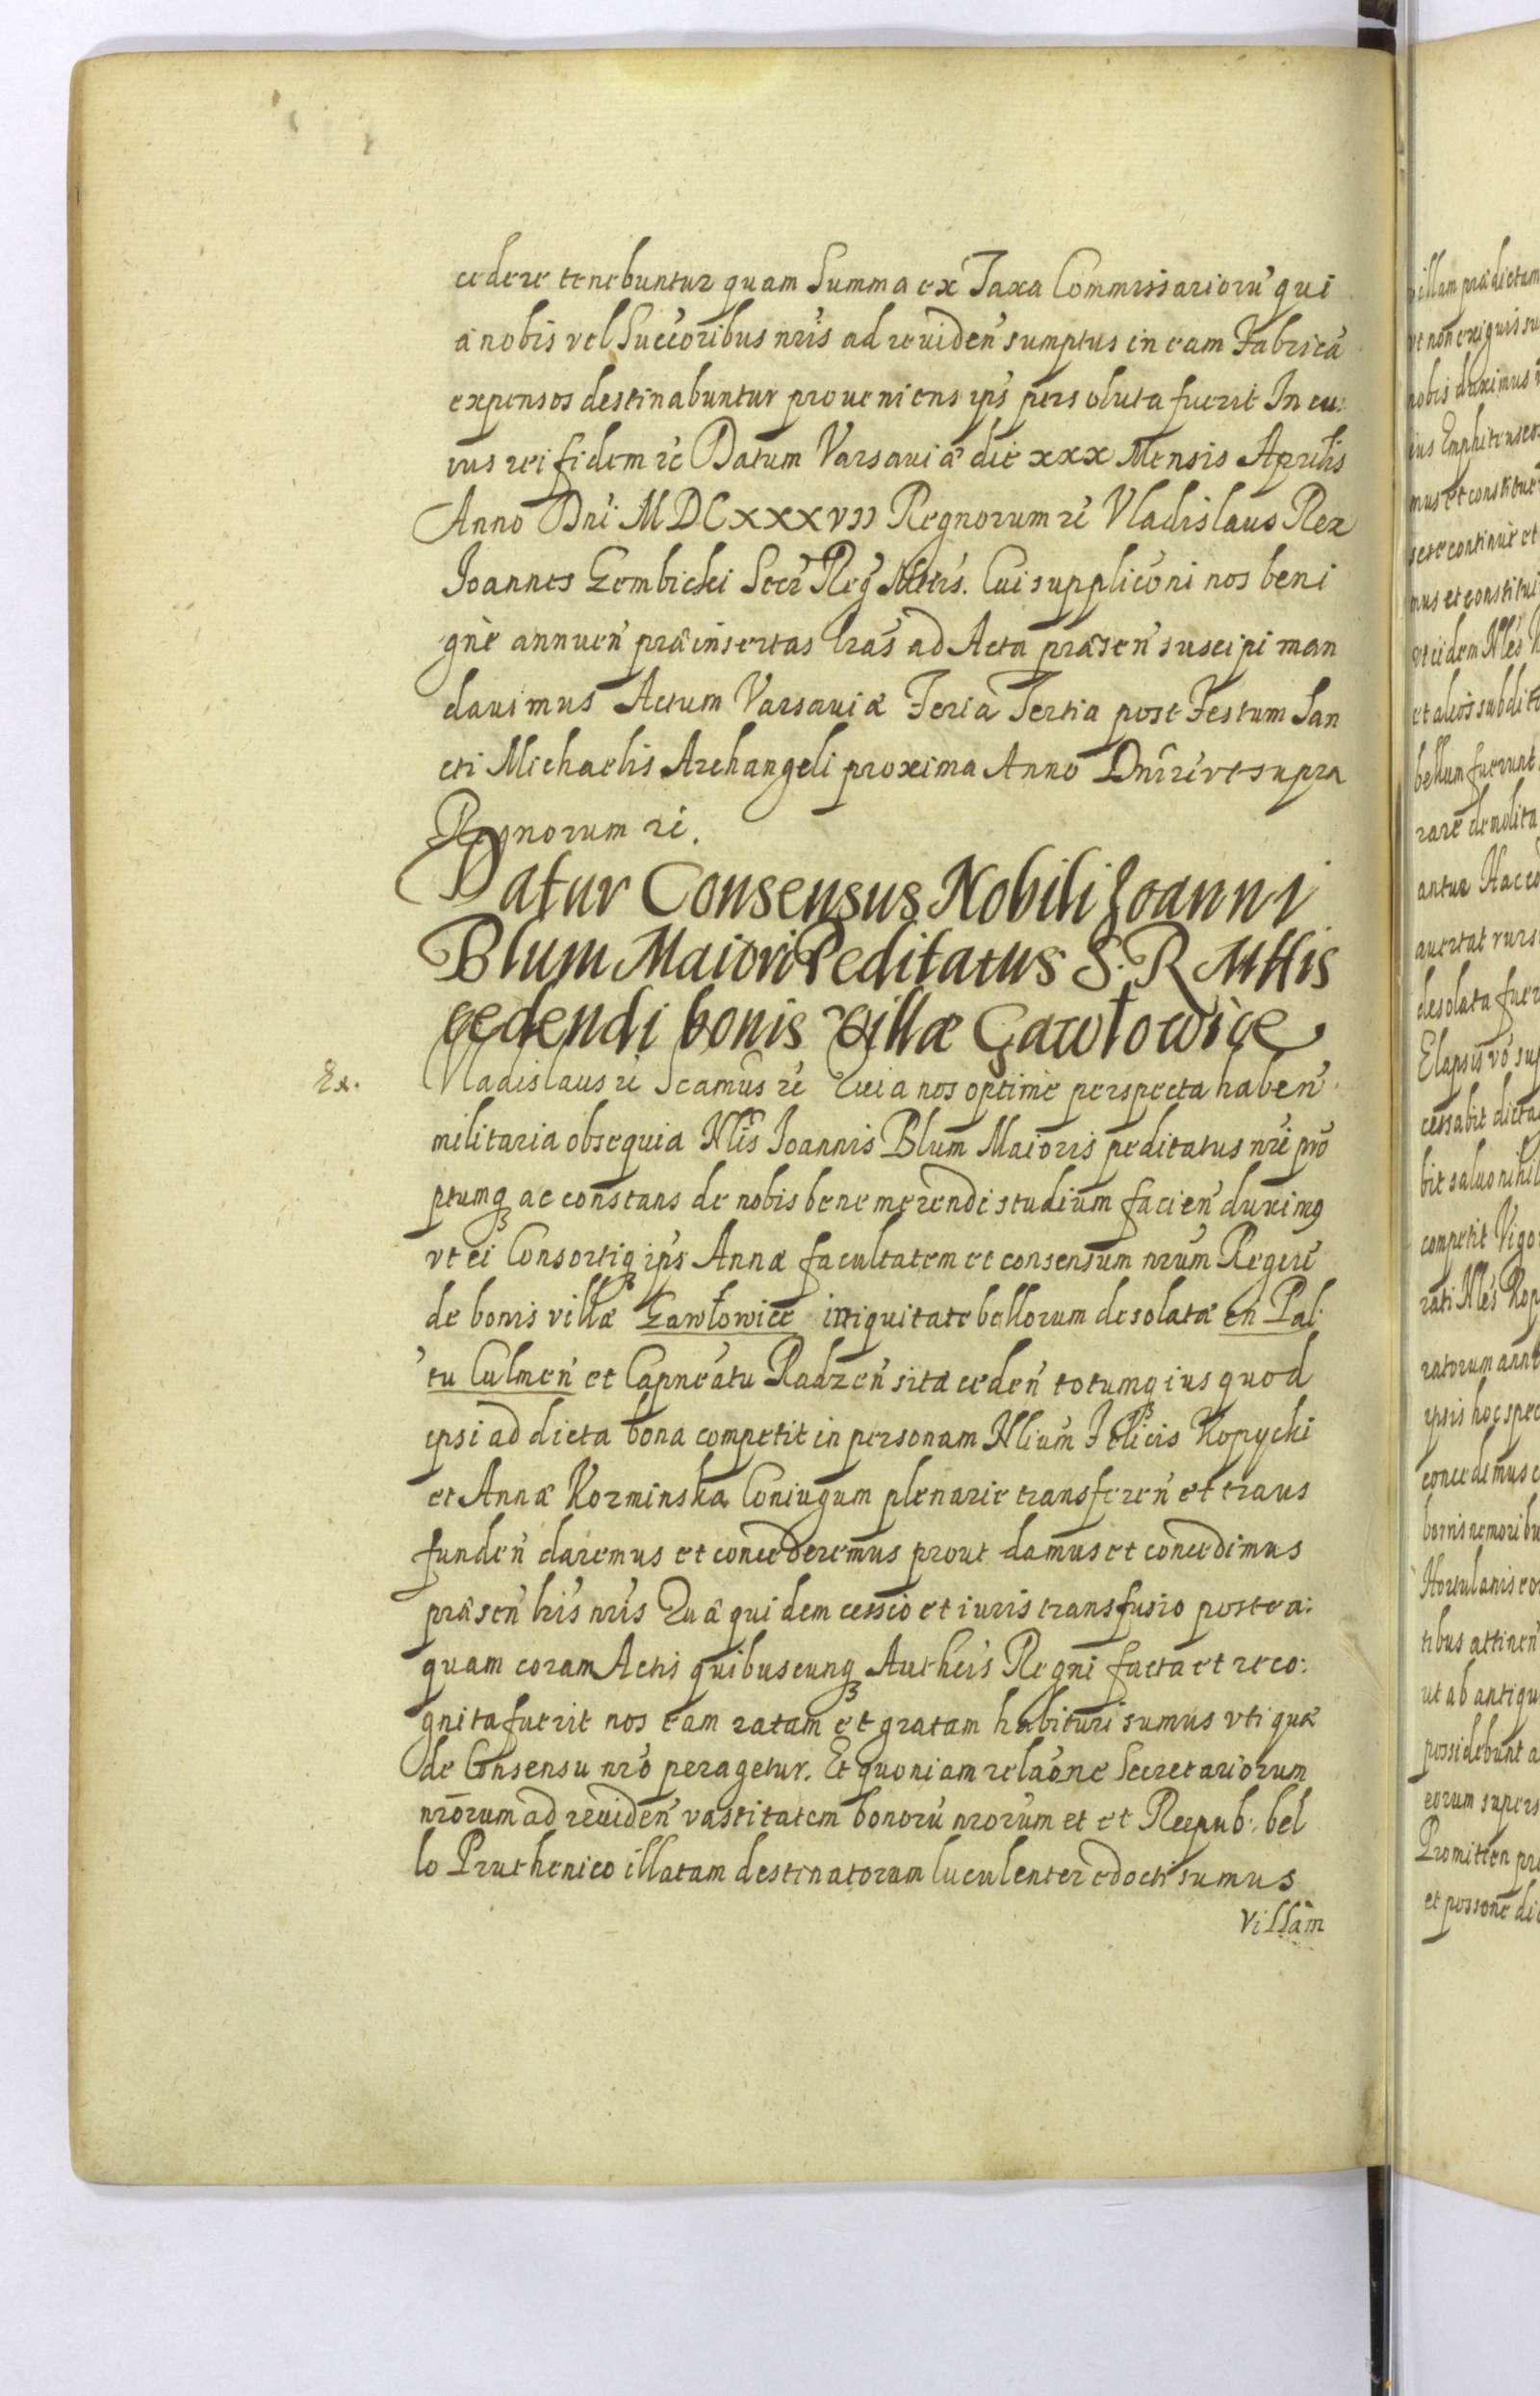 cedere tenebuntur quam Summa ex Taxa Commissariorū qui
a nobis vel Succoribus nris ad reuiden sumptus in eam Fabricā
expensos destinabuntur proueniens ips persoluta fuerit In cu:
ius rei fidem rc Datum Varsauiæ die xxx Mensis Aprilis
Anno Dni MDCxxxvii Regnorum rc Vladislaus Rex
Joannes Gembicki Secr Reg Mttis. Cui supplicōni nos beni
gnè annuen præinsertas lras ad Acta præsen suscipi man
dauimus Actum Varsauiæ Feria Tertia post Festum San
cti Michaelis Archangeli proxima Anno Dni rc vt supra
Regnorum rc.
Datur Consensus Nobili Joanni
Blum Maiori Peditatus S. R Mttis
cedendi bonis villæ Gawłowice
Ex. Vladislaus rc Scamus rc Quia nos optime perspecta haben
militaria obsequia Nlis Joannis Blum Maioris peditatus nri pro
ptumq ac constans de nobis bene merendi studium facien duximq
vt ei Consortiq ips Annæ facultatem et consensum nrum Regere
de bonis villæ Gawłowice iniquitate bellorum desolatæ en Pal:
tu Culmen et Capneatu Radzen sitæ ceden totumq ius quod
ipsi ad dicta bona competit in personam Nlium Felicis Kopycki
et Annæ Korminska Coniugum plenarie transferen et trans
funden daremus et concederemus prout damus et concedimus
præsen lris nris Quæ quidem cessio et iuris transfusio postea:
quam coram Actis quibuscunq Authcis Regni facta et reco:
gnita fuerit nos eam ratam et gratam habituri sumus vti quæ
de Consensu nro peragetur. Et quoniam relaone Secretariorum
nrorum ad reuiden vastitatem bonorū nrorum et et Reipub: bel
lo Pruthenico illatam destinatoram luculenter edocti sumus
Villam